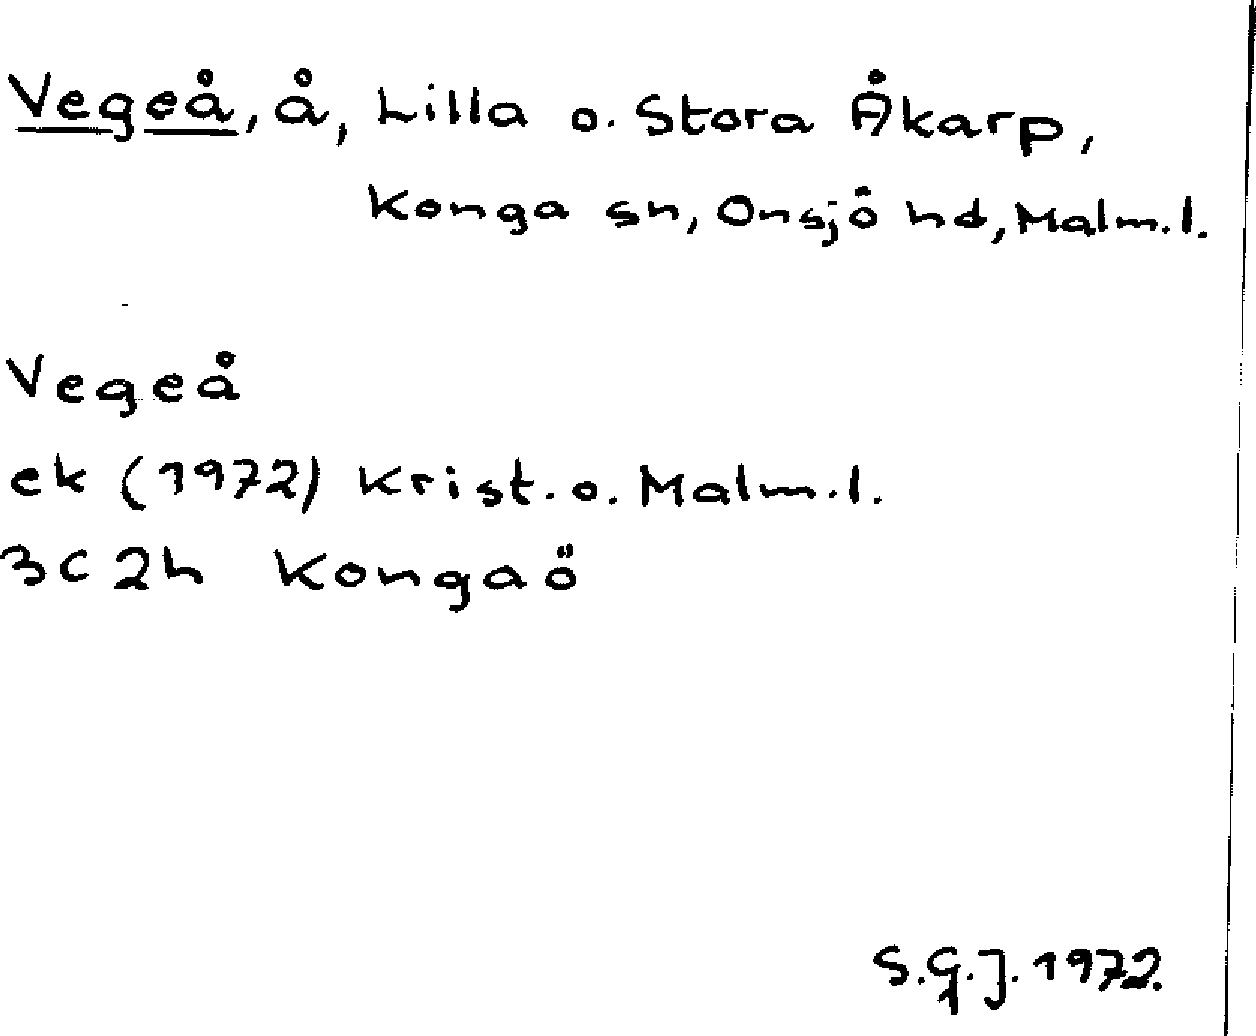 Vegeå, å, Lilla o. Stora Åkarp,
Konga sn, Onsjö hd, Malm.l.
Vegeå
ek (1972) Krist. o. Malm.l.
3C2h Kongaö
S.G.J. 1972.